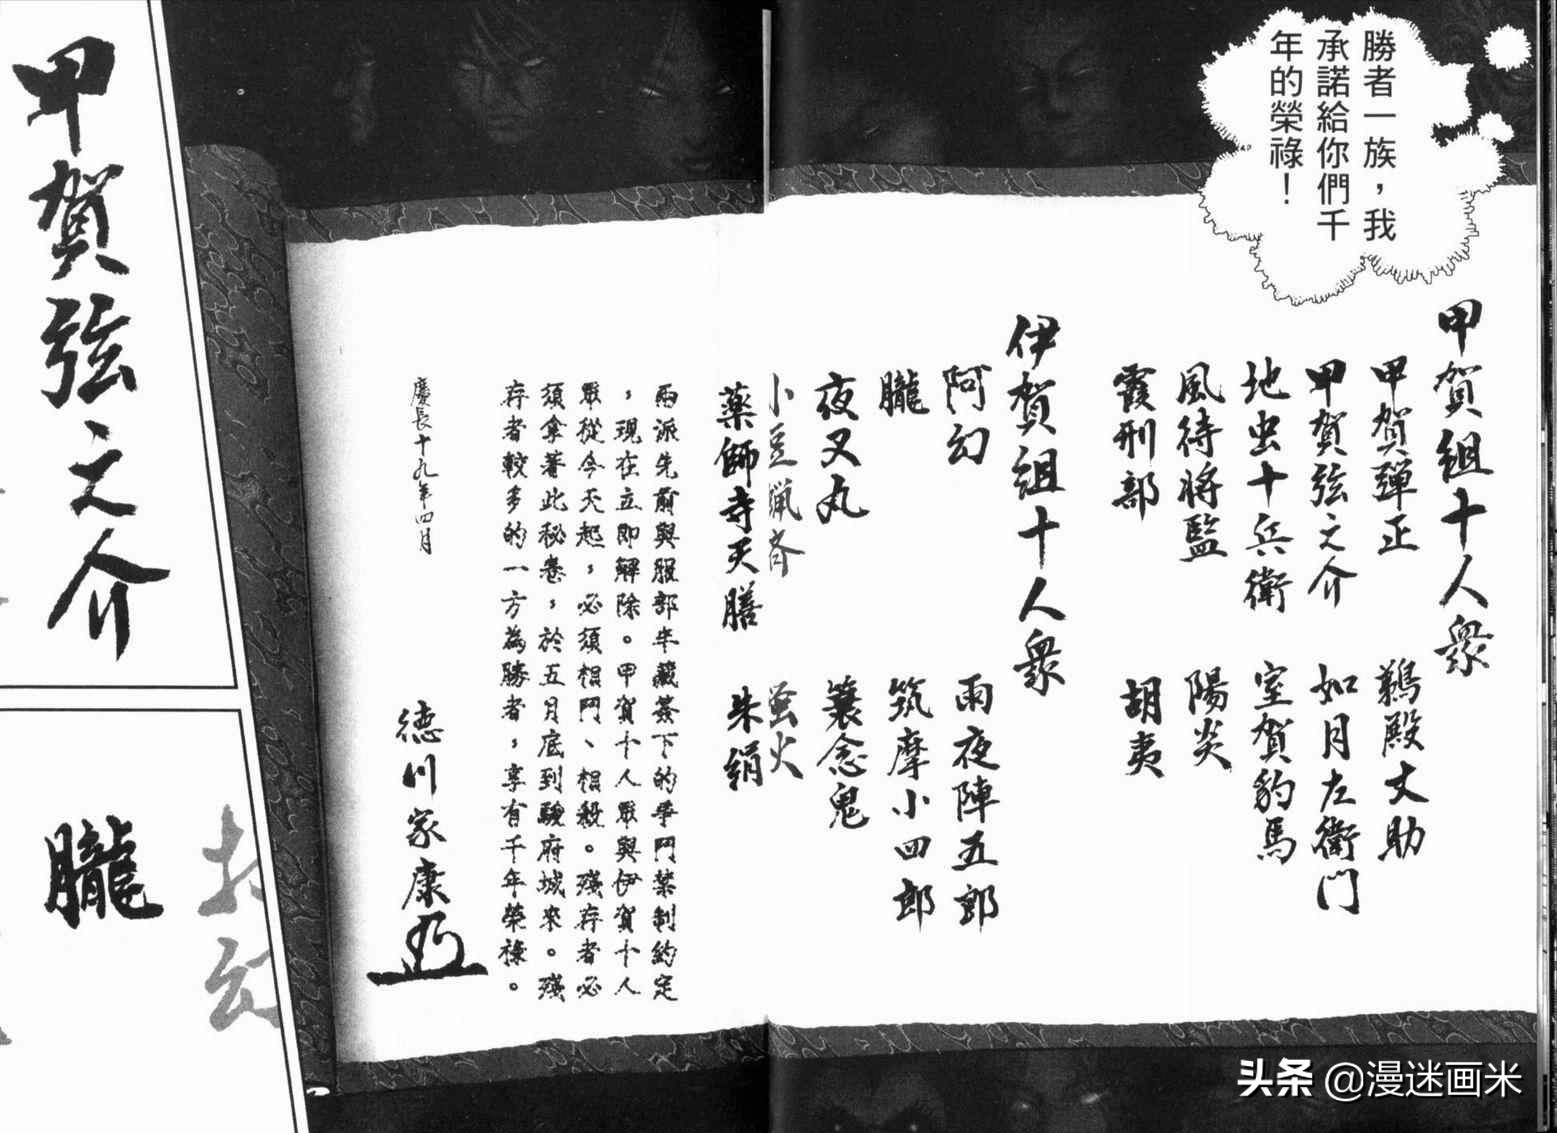 勝者一族，我
承諾給你們千
年的榮祿！
甲賀組十人衆
甲賀彈正
鵜殿丈助
甲賀弦之介
如月左衛門
地虫十兵衛
室賀豹馬
風待將監
陽炎
霞刑部
胡夷
伊賀組十人衆
阿幻
雨夜陣五郎
朧
筑摩小四郎
夜叉丸
簑念鬼
小豆蠟斉
螢火
薬師寺天膳
朱絹
兩派先前與服部半藏簽下的爭鬥禁制約定
，現在立即解除。甲賀十人眾與伊賀十人
眾從今天起，必須相鬥、相殺。殘存者必
須拿著此秘卷，於五月底到駿府城來。殘
存者較多的一方為勝者，享有千年榮祿。
慶長十九年四月
德川家康
甲賀弦之介
朧
头条 @漫迷画米